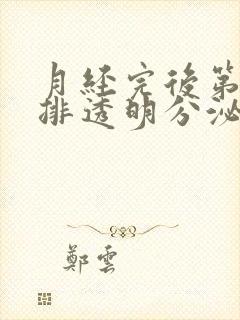 月經完後第
排透明分泌
鄭雲